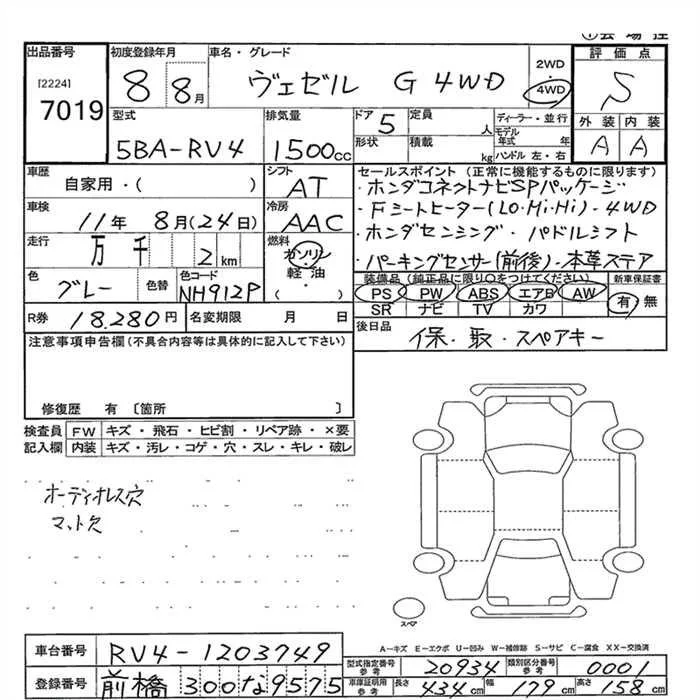 ①会場控
出品番号 初度登録年月 車名・グレード 2WD・4WD 評価点
[2224] 7019 8 8月 ヴェゼル G 4WD S
型式 排気量 ドア 定員 人 ディーラー・並行 外装 内装
5BA-RV4 1500cc 5 形状 積載 kg モデル年式 年 ハンドル 左・右 A A
車歴 自家用・( ) シフト AT セールスポイント (正常に機能するものに限ります)
・ホンダコネクトナビSPパッケージ
車検 11年 8月(24日) 冷房 AAC ・Fシートヒーター(LO・Mi・Hi)・4WD
・ホンダセンシング・パドルシフト
走行 万 千 2 km 燃料 ガソリン 軽油 ( ) ・パーキングセンサー(前後)・本革ステア
色 グレー 色替 色コード NH912P 装備品 (純正品に限り○をつけてください) 新車保証書
PS PW ABS エアB AW 有・無
SR ナビ TV カワ
R券 18,280円 名変期限 月 日 後日品 保・取・スペアキー
注意事項申告欄(不具合内容等は具体的に記入して下さい)
修復歴 有 〔箇所 〕
検査員 FW キズ・飛石・ヒビ割・リペア跡・×要
記入欄 内装 キズ・汚レ・コゲ・穴・スレ・キレ・破レ
オーディオレス穴
マット欠
スペア
A-キズ E-エクボ U-凹み W-補修跡 S-サビ C-腐食 XX-交換済
車台番号 RV4-1203749 型式指定番号 参考 20934 類別区分番号 参考 0001
登録番号 前橋 300な9575 車庫証明用 参考 長さ 434cm 幅 179cm 高さ 158cm